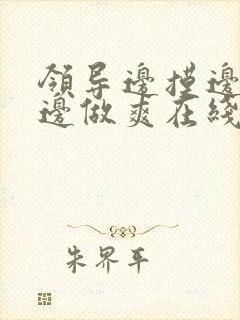 領导邊摸邊
邊做爽在綫
朱界平